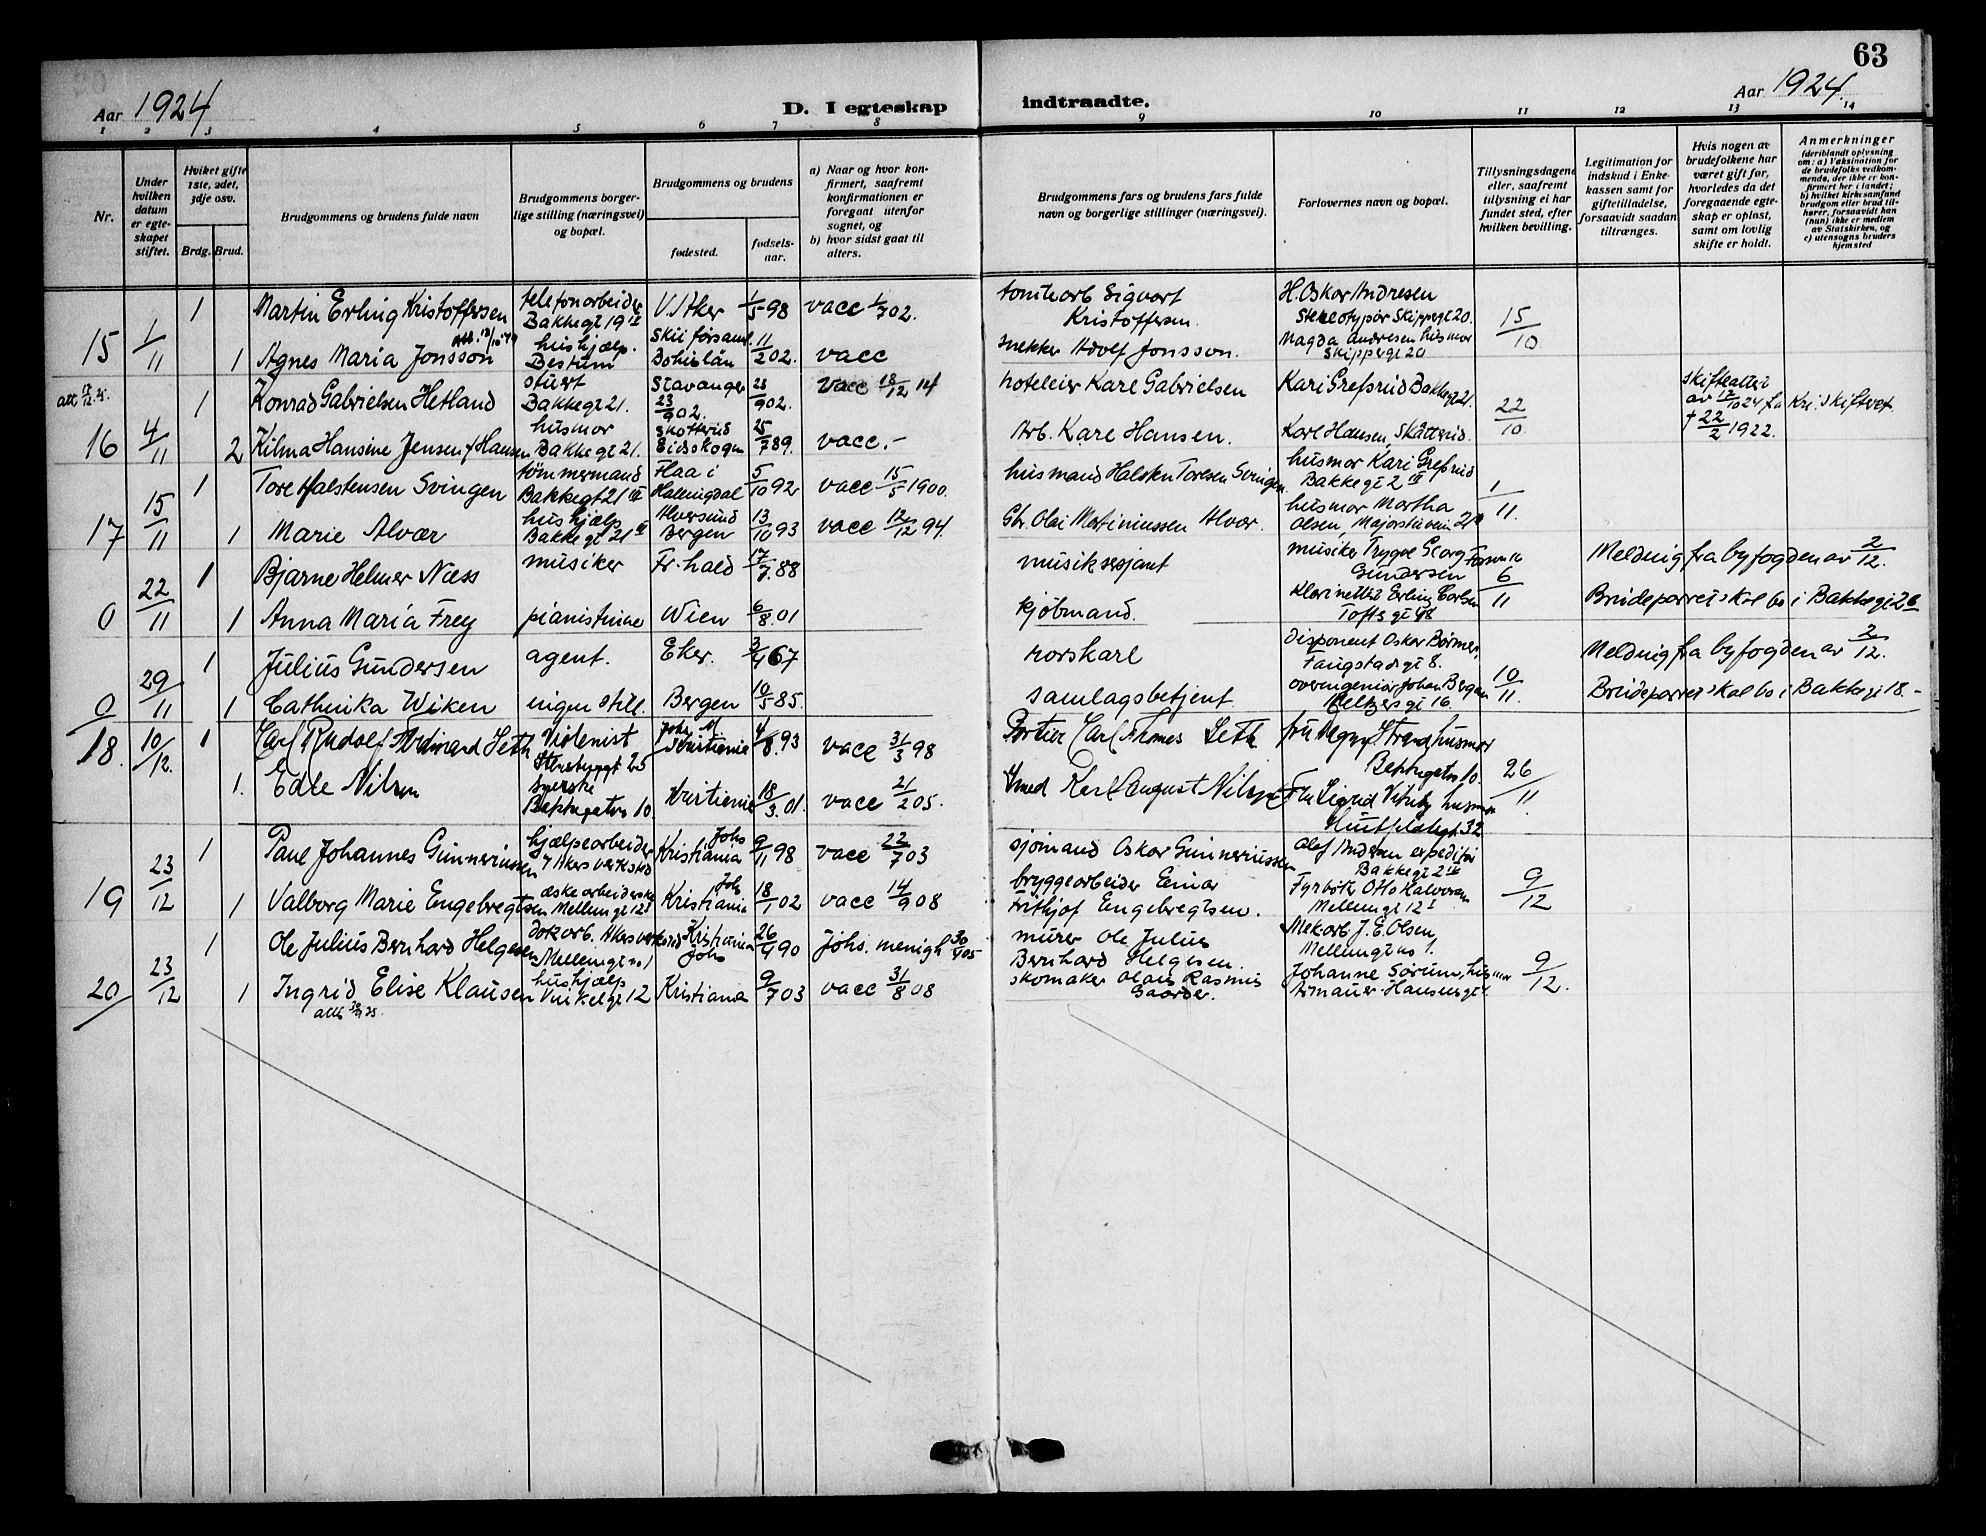 63
Aar 1924
D. I egteskap indtraadte.
Aar 1924.
1 2 3 4 5 6 7 8 9 10 11 12 13 14
Nr.
Under hvilken datum er egteskapet stiftet.
Hvilket gifte 1ste, 2det, 3dje osv.
Brdg. Brud.
Brudgommens og brudens fulde navn
Brudgommens borgerlige stilling (næringsvei) og bopæl.
Brudgommens og brudens
fødested.
fødsels-aar.
a) Naar og hvor konfirmert, saafremt konfirmationen er foregaat utenfor sognet, og
b) hvor sidst gaat til alters.
Brudgommens fars og brudens fars fulde navn og borgerlige stillinger (næringsvei).
Forlovernes navn og bopæl.
Tillysningsdagene eller, saafremt tillysning ei har fundet sted, efter hvilken bevilling.
Legitimation for indskud i Enkekassen samt for giftetilladelse, forsaavidt saadan tiltrænges.
Hvis nogen av brudefolkene har været gift før, hvorledes da det foregaaende egteskap er opløst, samt om lovlig skifte er holdt.
Anmerkninger
(deriblandt oplysning om: a) Vaksination for de brudefolks vedkommende, der ikke er konfirmert her i landet; b) hvilket kirkesamfund brudgom eller brud tilhører, forsaavidt han (hun) ikke er medlem av Statskirken, og c) utensogns bruders hjemsted
15 1/11 1 Martin Erling Kristoffersen telefonarbeider Bakkegt 19 V. Aker 1/5 98 vacc 702. tomtearb Sigvart Kristoffersen. H. Oskar Andresen Stereotypør Skippergt 20. 15/10
1 Agnes Maria Jonsson hushjælp. Bestum Bohuslän 11/2 02. vacc snekker Adolf Jonsson. Magda Andresen husmor Skippergt 20
16 4/11 1 Konrad Gabrielsen Hetland stuert Bakkegt 21. Stavanger 23/9 02. vacc 18/12 14 hoteleier Karl Gabrielsen Kari Grefsrud Bakkegt 21. 22/10 skifteattest av 17/10 24 fa Kr.a skifteret † 22/2 1922.
2 Kilma Hansine Jensen f Hansen husmor Bakkegt 21. Skotterud Eidsskogen 25/7 89. vacc.- Arb. Karl Hansen. Karl Hansen, Skåtterud.
17 15/11 1 Tore Halstensen Svingen tømmermand Bakkegt 21 Flaa i Hallingdal 5/10 92 vacc 15/5 1900. husmand Halsten Toresen Svingen husmor Kari Grefsrud Bakkegt 2 1/11.
1 Marie Alvær hushjælp Bakkegt 21 Alversund Bergen 13/10 93 vacc 12/12 94. Gbr. Olai Martiniussen Alvær. husmor Martha Olsen, Majorstuvein 21
0 22/11 1 Bjarne Helmer Næss musiker Fr.hald 17/7.88 musiksersjant musiker Trygve Georg Gundersen 6/11 Melding fra byfogden av 2/12.
1 Anna Maria Frey pianistinne Wien 6/8.01 kjøbmand. Klarinettist Erling Carlsen Toftsgt 48 Brudeparret skal bo i Bakkegt 2
0 29/11 1 Julius Gundersen agent. Eker. 3/4 67 norskarl disponent Oskar Børmer, Faugstadgt 8. 10/11. Melding fra byfogden av 2/12.
1 Cathinka Wiken ingen still. Bergen 10/5 85. samlagsbetjent overingeniør Johan Bergan 16 Brudeparret skal bo i Bakkegt 18.-
18. 10/12. 1 Carl Rudolf Ferdinand Seth Violinist 25 Kristiania 4/8.93 vacc 31/3 98 Portier Carl Thomas Seth fru Dagny Strand husmor Bakkegaten 10. 26/11.
1. Edle Nilsen syerske Bakkegaten 10. Kristiania 18/3.01. vacc 21/2 05. Smed Karl August Nilsen Fru Sigrid husmor Huitfeldtsgt 32
19 23/12 1 Paul Johannes Gunneriussen hjælpearbeider Akers verksted Kristiania Johs 9/11 98 vacc 22/7 03 sjømand Oskar Gunneriussen Olaf Andersen expeditør Bakkegt 2 9/12
1 Valborg Marie Engebregtsen æskearbeiderske Mellemgt 12 Kristiania Joh 18/1 02 vacc 14/9 08 bryggearbeider Einar Frithjof Engebregtsen. Fyrbøter Otto Halvorsen Mellemgt 12
20 23/12 1 Ole Julius Bernhard Helgesen dokarb. Akers verksted Mellemgt no 1 Kristiania Johs 26/4 90 Johs. menigh 30/4 05 murer Ole Julius Bernhard Helgesen. Mek.arb J. E. Olsen, Mellemgt no 1. 9/12.
1 Ingrid Elise Klausen hushjælp Vinkelgt 12 Kristiania 9/7 03 vacc 31/8 08 skomaker Olaus Rasmus Gaarder. Johanne Sørum, husmor Armauer-Hansensgt